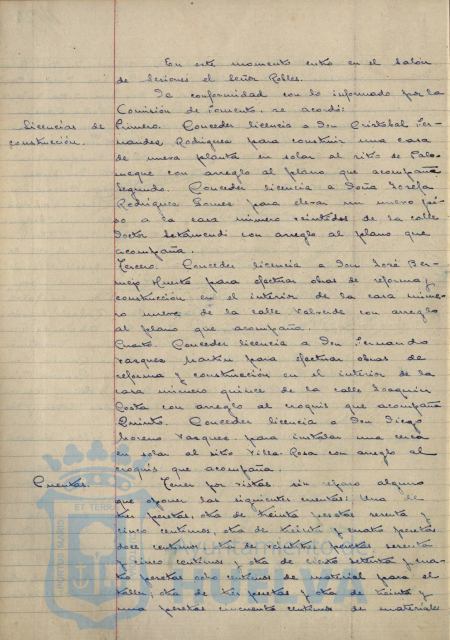 En este momento entra en el Salón
de Sesiones el Señor Robles.
De conformidad con lo informado por la
Comisión de Fomento, se acordó:
Licencias de
construcción.
Primero. Conceder licencia a Don Cristóbal Fer-
nandez Rodriguez para construir una casa
de nueva planta en solar al sitio de Palo-
meque con arreglo al plano que acompaña
Segundo. Conceder licencia a Doña Josefa
Rodriguez Gomez para elevar un nuevo pi-
so a la casa número veintidos de la calle
Doctor Letamendi con arreglo al plano que
acompaña.
Tercero. Conceder licencia a Don José Ber-
mejo Huerta para efectuar obras de reforma y
construcción en el interior de la casa núme-
ro nueve de la calle Valverde con arreglo
al plano que acompaña.
Cuarto. Conceder licencia a Don Fernando
Vazquez Martin para efectuar obras de
reforma y construcción en el interior de la
casa número quince de la calle Joaquin
Costa con arreglo al croquis que acompaña
Quinto. Conceder licencia a Don Diego
Moreno Vazquez para instalar una cerca
en solar al sitio Villa Rosa con arreglo al
croquis que acompaña.
Cuentas.
Tener por vistas, sin reparo alguno
que oponer las siguientes cuentas: Una de
tres pesetas, otra de treinta pesetas sesenta y
cinco centimos, otra de treinta y cuatro pesetas
doce centimos, otra de pesetas sesenta
y cinco centimos y otra de ciento setenta y cua-
tro pesetas ocho centimos de material para el
taller; otra de tres pesetas y otra de treinta y
una pesetas cincuenta centimos de materiales
ET TERRÆ
Ayuntamiento de
HUELVA